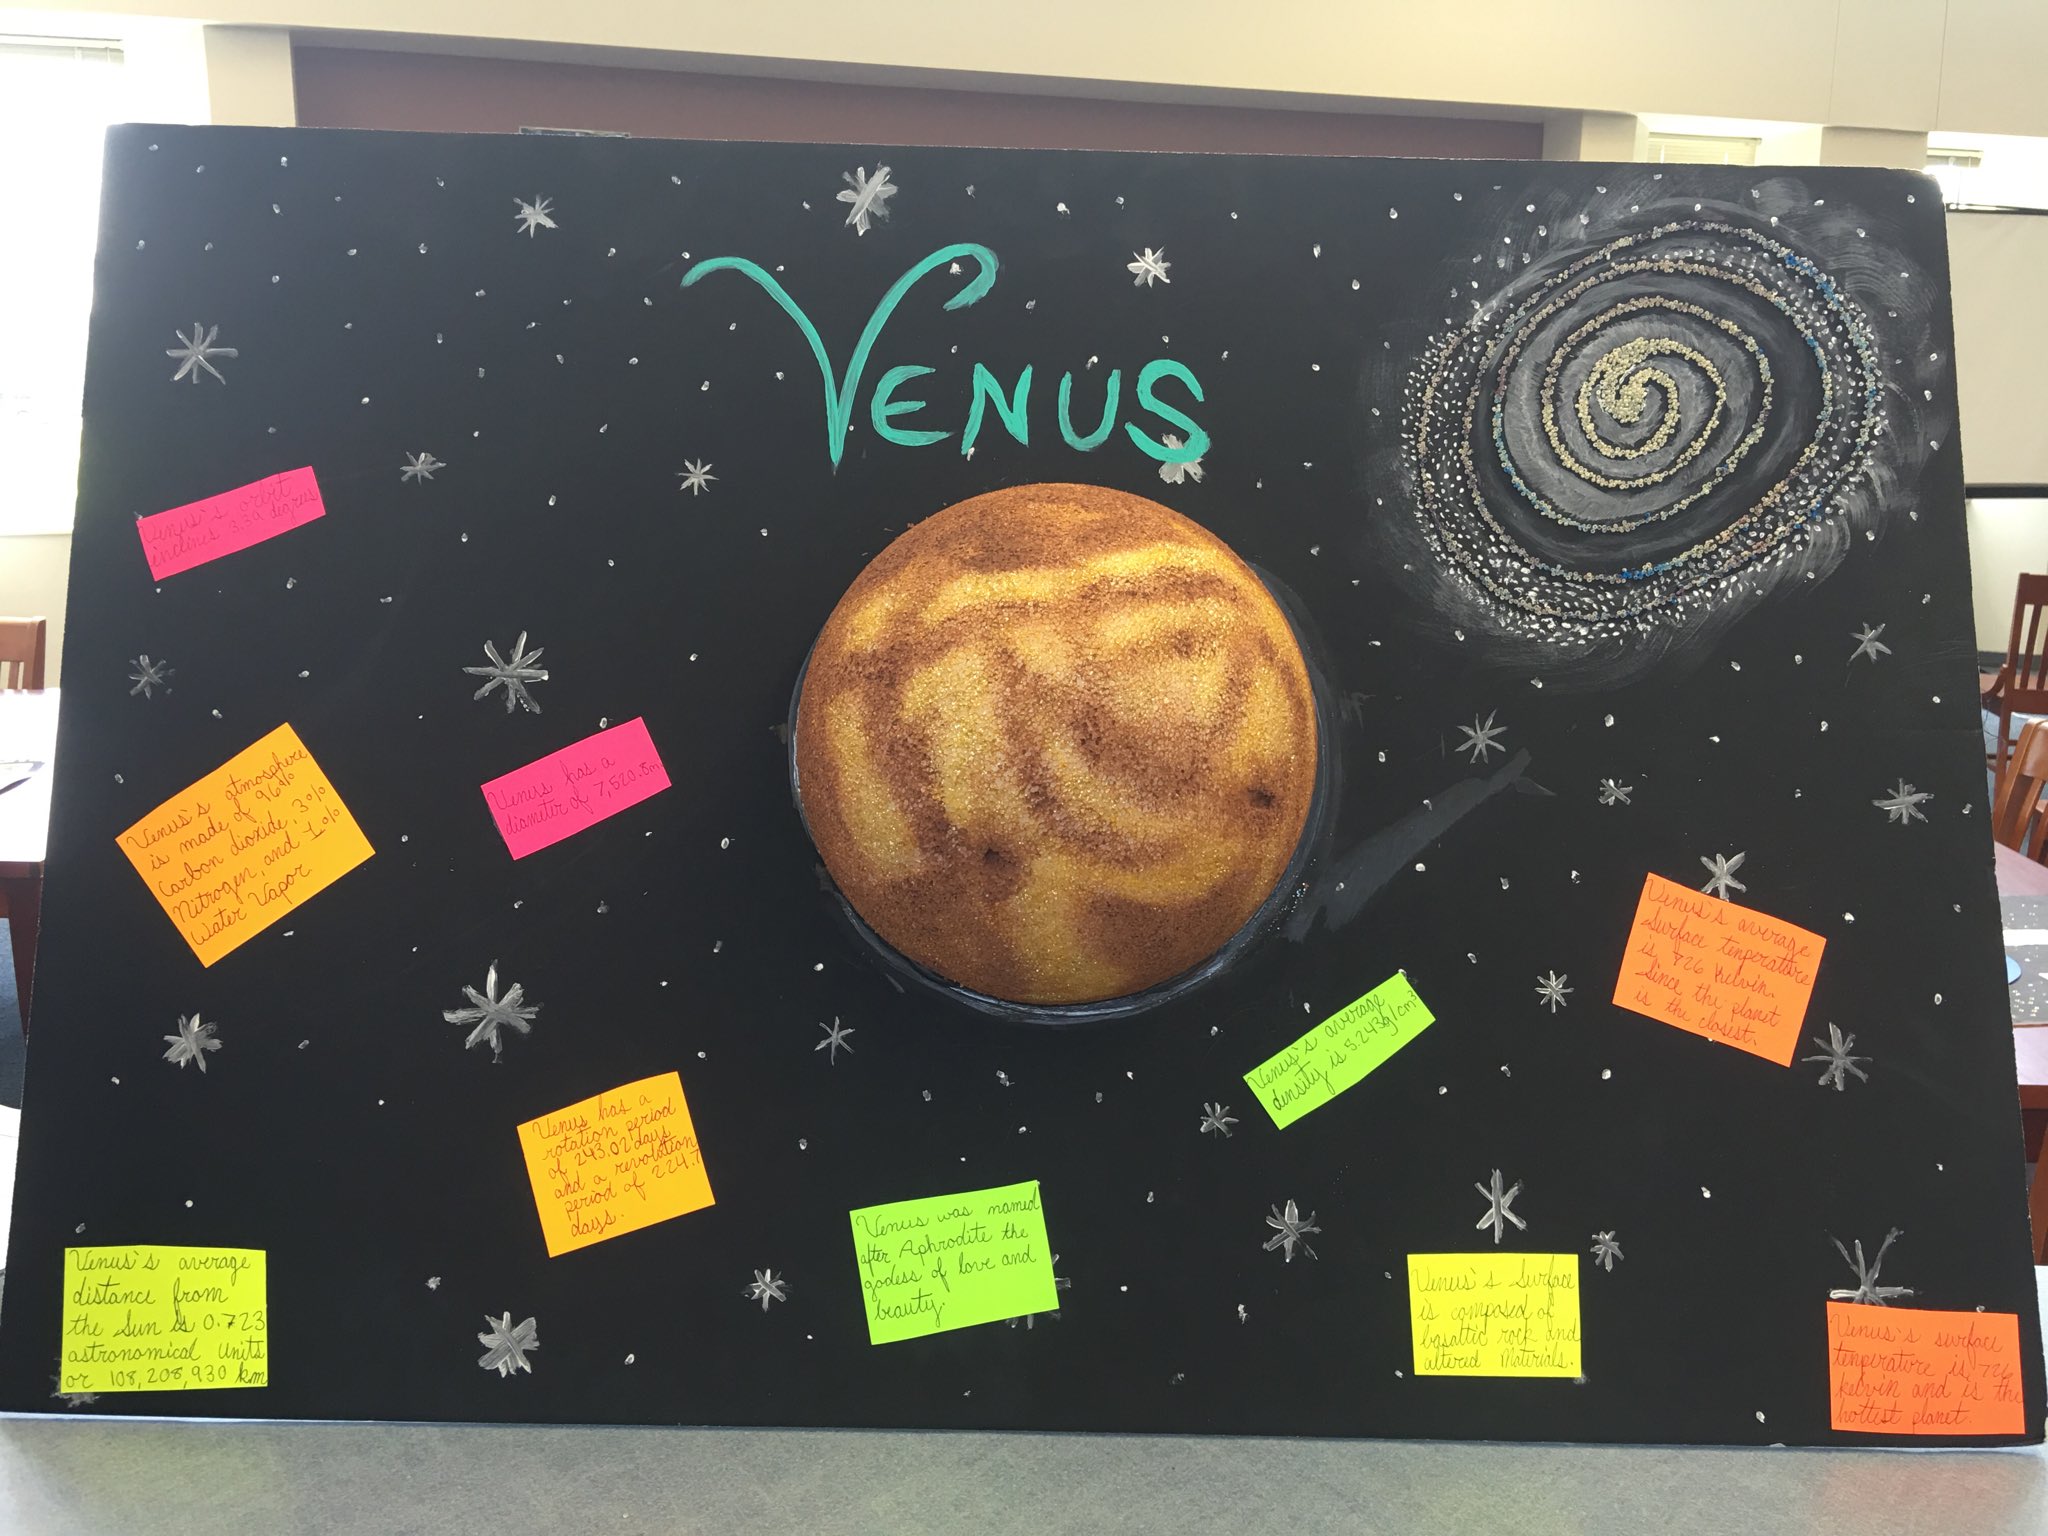 VENUS
Venus's orbit
inclines 3.39 degrees
Venus's atmosphere
is made of 96%
Carbon dioxide, 3%
Nitrogen, and 1%
Water Vapor.
Venus has a
diameter of 7,520.8m
Venus's average
surface temperature
is 726 Kelvin.
Since the planet
is the closest.
Venus's average
density is 5.243g/cm³
Venus has a
rotation period
of 243.02 days
and a revolution
period of 224.7
days.
Venus was named
after Aphrodite the
godess of love and
beauty.
Venus's average
distance from
the Sun is 0.723
astronomical units
or 108,208,930 km
Venus's Surface
is composed of
basaltic rock and
altered Materials.
Venus's surface
temperature is 726
kelvin and is the
hottest planet.